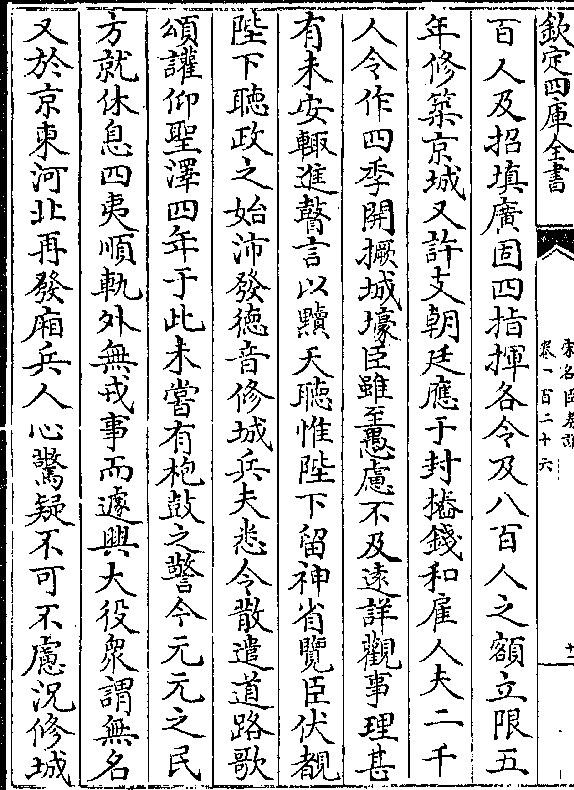 欽定四庫全書
宋名臣奏議
卷一百二十六
十一
百人及招填廣固四指揮各令及八百人之額立限五
年修築京城又許支朝廷應于封樁錢和雇人夫二千
人令作四季開撅城壕臣雖至愚慮不及遠詳觀事理甚
有未安輒進瞽言以黷天聽惟陛下留神省覽臣伏覩
陛下聴政之始沛發徳音修城兵夫悉令散遣道路歌
頌讙仰聖澤四年于此未嘗有枹鼓之警今元元之民
方就休息四夷順軌外無戎事而遽興大役衆謂無名
又於京東河北再發廂兵人心驚疑不可不慮況修城